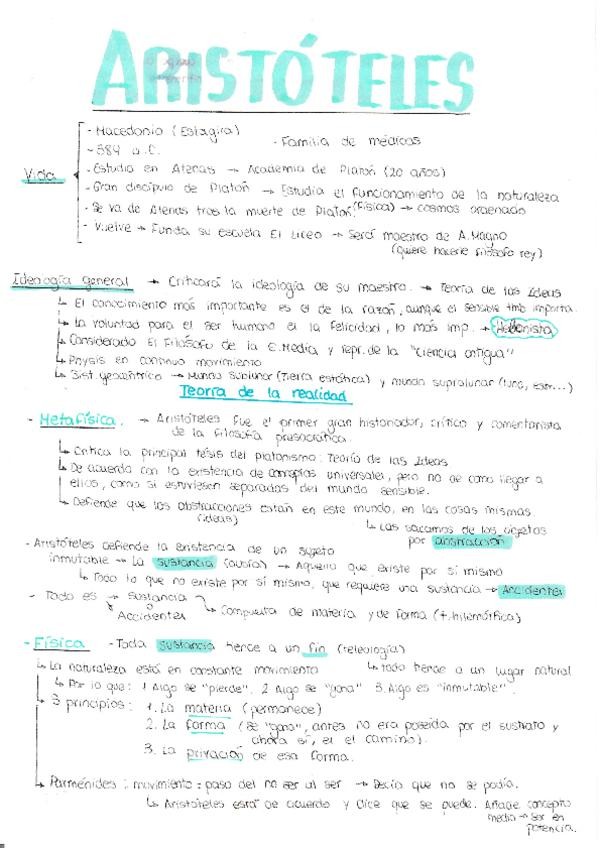 ARISTÓTELES
Vida
- Macedonia (Estagira) - Familia de médicos
~ 384 a.C.
- Estudia en Atenas → Academia de Platón (20 años)
- Gran discípulo de Platón → Estudia el funcionamiento de la naturaleza
- Se va de Atenas tras la muerte de Platón (Física) → cosmos ordenado
- Vuelve → Funda su escuela El Liceo → Será maestro de A. Magno
(quiere hacerle filósofo rey)
Ideología general → Criticará la ideología de su maestro → Teoría de las Ideas
↳ El conocimiento más importante es el de la razón, aunque el sensible tmb importa.
↳ La voluntad para el ser humano es la felicidad, lo más imp. →
↳ Considerado El Filósofo de la E. Media y repr. de la "ciencia antigua"
↳ Physis en continuo movimiento
↳ Sist. geocéntrico → Mundo sublunar (Tierra estática) y mundo supralunar (luna, estr...)
Teoría de la realidad
- Metafísica. → Aristóteles fue el primer gran historiador, crítico y comentarista
de la filosofía presocrática.
↳ Critica la principal tesis del platonismo: Teoría de las Ideas
↳ De acuerdo con la existencia de conceptos universales, pero no de como llegar a
ellos, como si estuviesen separadas del mundo sensible.
↳ Defiende que las abstracciones están en este mundo, en las cosas mismas
(ideas) ↳ Las sacamos de los objetos
por abstracción
- Aristóteles defiende la existencia de un sujeto
inmutable → La sustancia (ousía) → Aquello que existe por sí mismo
↳ Todo lo que no existe por sí mismo, que requiere una sustancia → Accidentes
- Todo es → Sustancia
o
Accidentes ↳ Compuesta de materia y de forma (t. hilemórfica)
- Física - Toda sustancia tiende a un fin (teleología)
↳ La naturaleza está en constante movimiento ↳ todo tiende a un lugar natural
↳ Por lo que: 1 Algo se "pierde". 2 Algo se "gana" 3. Algo es "inmutable".
↳ 3 principios: 1. La materia (permanece)
2. La forma (se "gana", antes no era poseída por el sustrato y
ahora sí, es el camino).
3. La privación de esa forma.
↳ Parménides: movimiento: paso del no ser al ser → Decía que no se podía.
↳ Aristóteles está de acuerdo y dice que se puede. Añade concepto
medio → ser en
potencia.